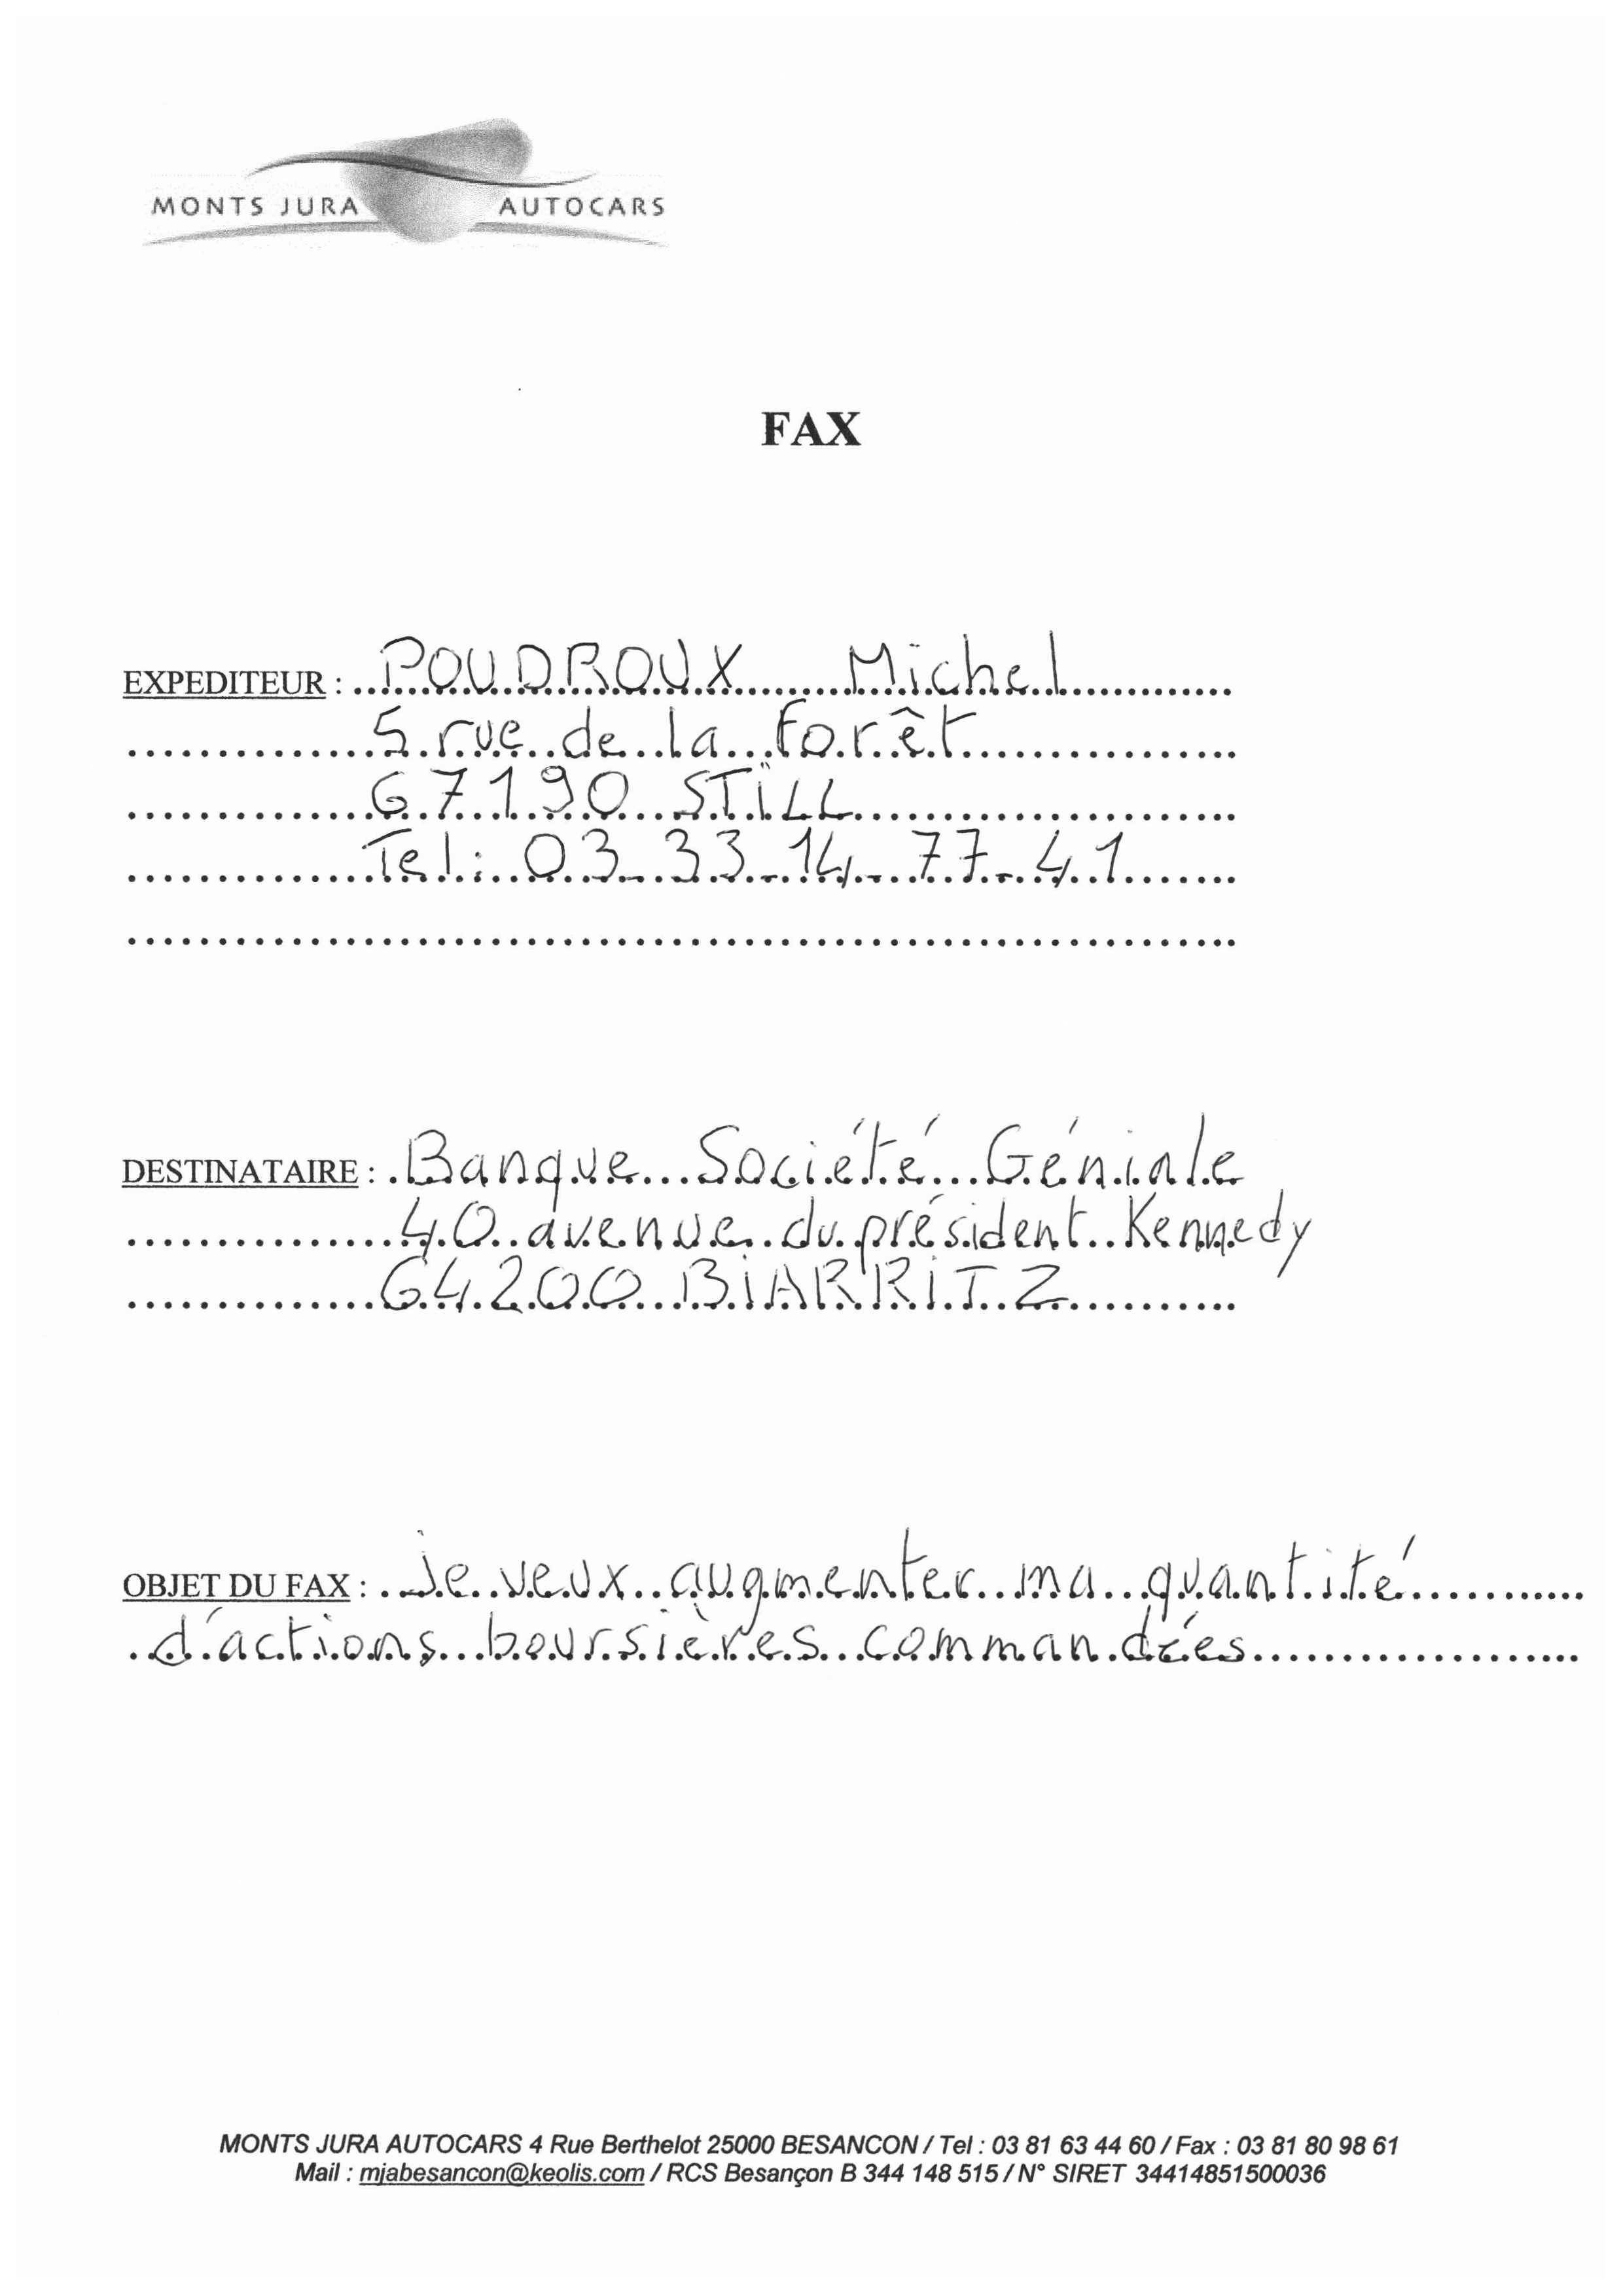 MONTS JURA AUTOCARS
FAX
EXPEDITEUR : POUDROUX Michel
5 rue de la forêt
67190 STILL
Tel : 03_33_14_77_41
DESTINATAIRE : Banque Société Géniale
40 avenue du président Kennedy
64200 BIARRITZ
OBJET DU FAX : Je veux augmenter ma quantité
d'actions boursières commandées
MONTS JURA AUTOCARS 4 Rue Berthelot 25000 BESANCON / Tel : 03 81 63 44 60 / Fax : 03 81 80 98 61
Mail : mjabesancon@keolis.com / RCS Besançon B 344 148 515 / N° SIRET 34414851500036